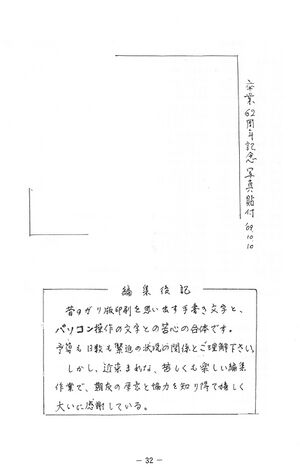 卒業62周年記念 写真貼付 '09.10.10
編集後記
昔のガリ版印刷を思い出す手書き文字と、
パソコン操作の文字との苦心の合体です。
予算も日数も緊迫の状況の関係とご理解下さい。
しかし、近来まれな、苦しくも楽しい編集
作業で、期友の厚意と協力を知り得て嬉しく
大いに感謝している。
－32－